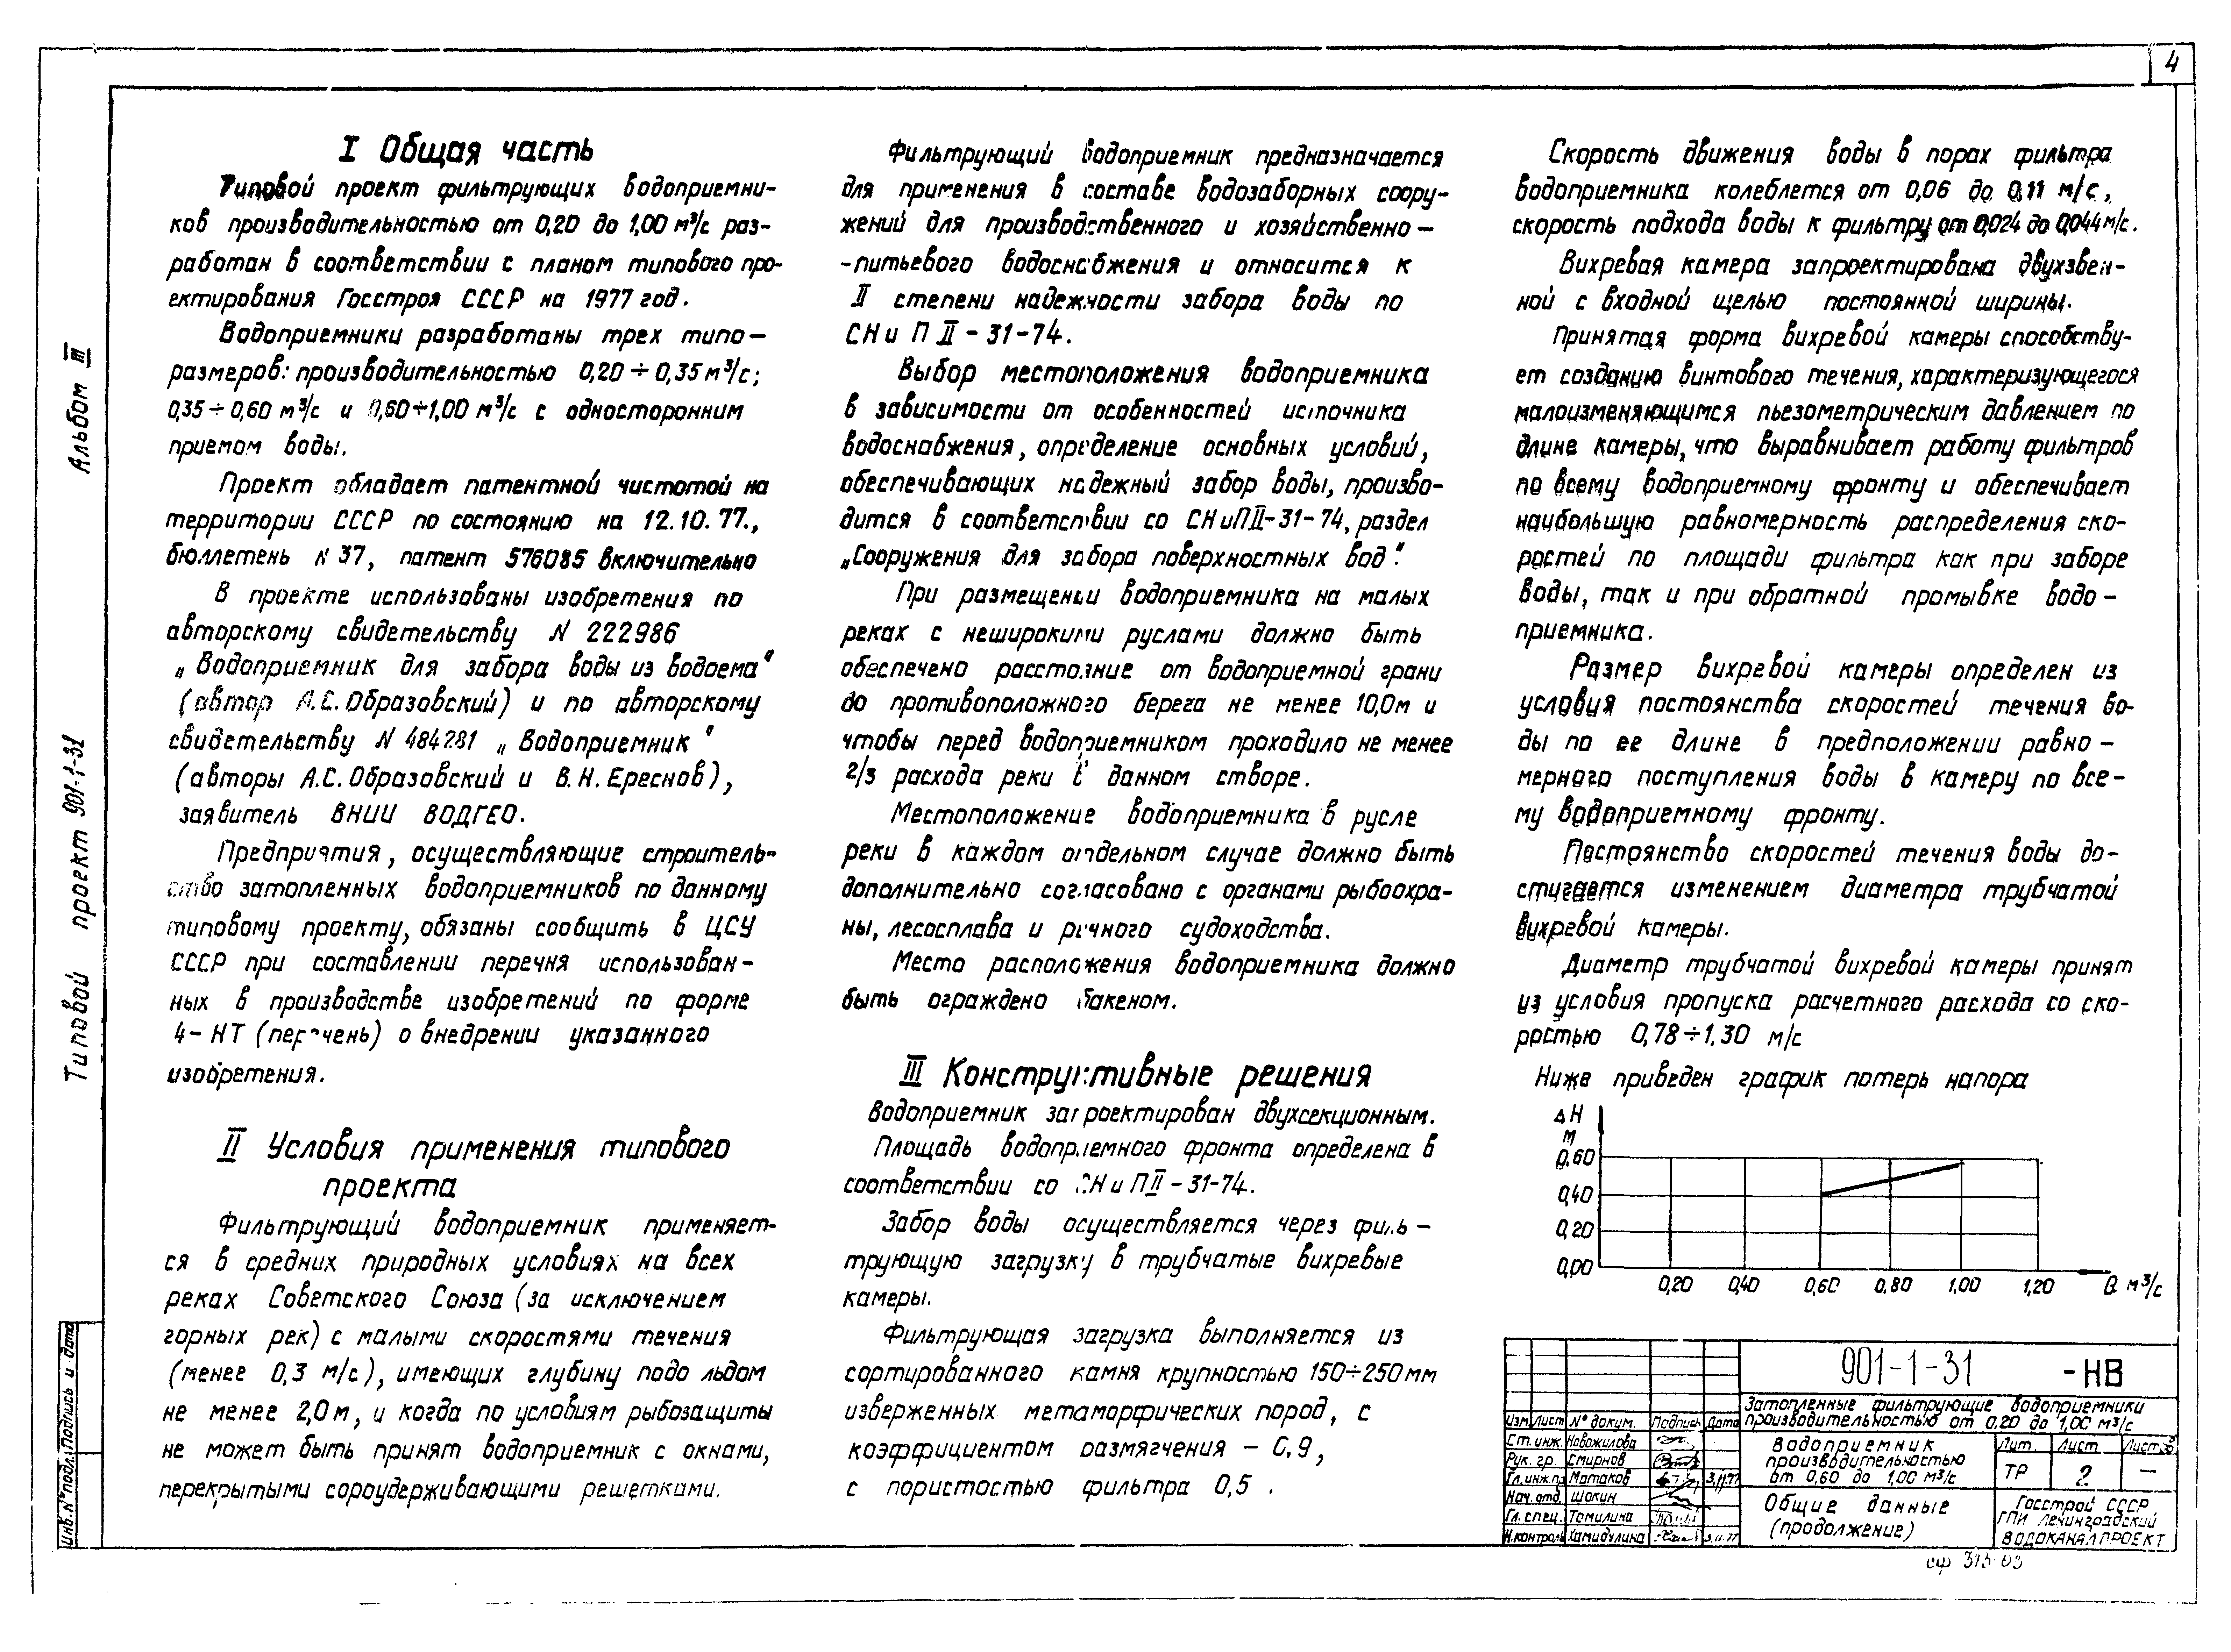 4
I Общая часть
Типовой проект фильтрующих водоприемни-
ков производительностью от 0,20 до 1,00 м³/с раз-
работан в соответствии с планом типового про-
ектирования Госстроя СССР на 1977 год.
Водоприемники разработаны трех типо-
размеров: производительностью 0,20÷0,35 м³/с;
0,35÷0,60 м³/с и 0,60÷1,00 м³/с с односторонним
приемом воды.
Проект обладает патентной чистотой на
территории СССР по состоянию на 12.10.77.,
бюллетень N 37, патент 576085 включительно
В проекте использованы изобретения по
авторскому свидетельству N 222986
„Водоприемник для забора воды из водоема"
(автор А.С. Образовский) и по авторскому
свидетельству N 484281 „Водоприемник"
(авторы А.С. Образовский и В.Н. Ереснов),
заявитель ВНИИ ВОДГЕО.
Предприятия, осуществляющие строитель-
ство затопленных водоприемников по данному
типовому проекту, обязаны сообщить в ЦСУ
СССР при составлении перечня использован-
ных в производстве изобретений по форме
4-НТ (перечень) о внедрении указанного
изобретения.
II Условия применения типового
проекта
Фильтрующий водоприемник применяет-
ся в средних природных условиях на всех
реках Советского Союза (за исключением
горных рек) с малыми скоростями течения
(менее 0,3 м/с), имеющих глубину подо льдом
не менее 2,0 м, и когда по условиям рыбозащиты
не может быть принят водоприемник с окнами,
перекрытыми сороудерживающими решетками.
Фильтрующий водоприемник предназначается
для применения в составе водозаборных соору-
жений для производственного и хозяйственно-
-питьевого водоснабжения и относится к
II степени надежности забора воды по
СН и П II-31-74.
Выбор местоположения водоприемника
в зависимости от особенностей источника
водоснабжения, определение основных условий,
обеспечивающих надежный забор воды, произво-
дится в соответствии со СН и П II-31-74, раздел
„Сооружения для забора поверхностных вод".
При размещении водоприемника на малых
реках с неширокими руслами должно быть
обеспечено расстояние от водоприемной грани
до противоположного берега не менее 10,0м и
чтобы перед водоприемником проходило не менее
2/3 расхода реки в данном створе.
Местоположение водоприемника в русле
реки в каждом отдельном случае должно быть
дополнительно согласовано с органами рыбоохра-
ны, лесосплава и речного судоходства.
Место расположения водоприемника должно
быть ограждено бакеном.
III Конструктивные решения
Водоприемник запроектирован двухсекционным.
Площадь водоприемного фронта определена в
соответствии со СН и П II-31-74.
Забор воды осуществляется через филь-
трующую загрузку в трубчатые вихревые
камеры.
Фильтрующая загрузка выполняется из
сортированного камня крупностью 150÷250 мм
изверженных метаморфических пород, с
коэффициентом размягчения - 0,9,
с пористостью фильтра 0,5.
Скорость движения воды в порах фильтра
водоприемника колеблется от 0,06 до 0,11 м/с,
скорость подхода воды к фильтру от 0,024 до 0,044 м/с.
Вихревая камера запроектирована двухзвен-
ной с входной щелью постоянной ширины.
Принятая форма вихревой камеры способству-
ет созданию винтового течения, характеризующегося
малоизменяющимся пьезометрическим давлением по
длине камеры, что выравнивает работу фильтров
по всему водоприемному фронту и обеспечивает
наибольшую равномерность распределения ско-
ростей по площади фильтра как при заборе
воды, так и при обратной промывке водо-
приемника.
Размер вихревой камеры определен из
условия постоянства скоростей течения во-
ды по ее длине в предположении равно-
мерного поступления воды в камеру по все-
му водоприемному фронту.
Постоянство скоростей течения воды до-
стигается изменением диаметра трубчатой
вихревой камеры.
Диаметр трубчатой вихревой камеры принят
из условия пропуска расчетного расхода со ско-
ростью 0,78÷1,30 м/с
Ниже приведен график потерь напора
ΔH
м
0,60
0,40
0,20
0,00
0,20 0,40 0,60 0,80 1,00 1,20 Q м³/с
901-1-31 -НВ
Затопленные фильтрующие водоприемники
производительностью от 0,20 до 1,00 м³/с
Изм. Лист N° докум. Подпись Дата
Ст. инж. Новожилова
Рук. гр. Смирнов
Гл.инж.пр Матаков 3.11.77
Нач. отд. Шокин
Гл. спец. Томилина
Н.контроль Хамидулина 3.11.77
Водоприемник
производительностью
от 0,60 до 1,00 м³/с
Лит. Лист Листов
ТР 2 —
Общие данные
(продолжение)
Госстрой СССР
ГПИ Ленинградский
ВОДОКАНАЛПРОЕКТ
Альбом III
Типовой проект 901-1-31
Инв. N° подл. Подпись и дата